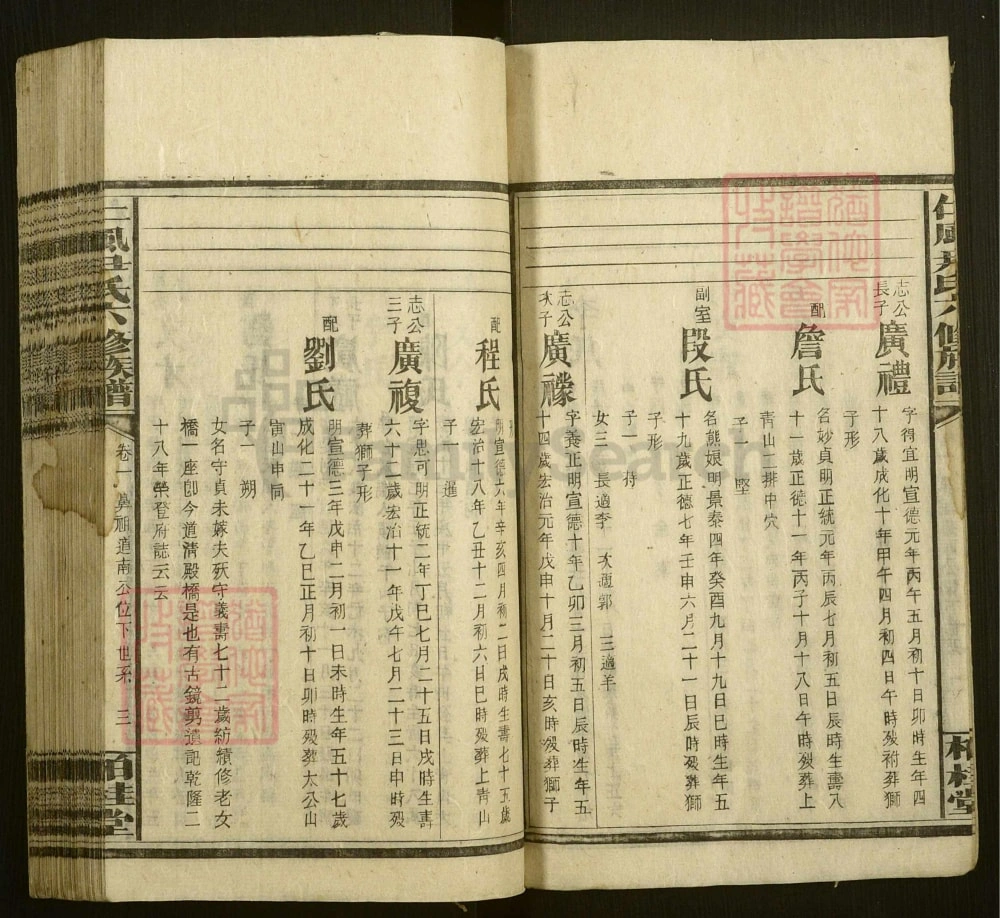 仁風尹氏六修族譜
柏桂堂
志公
長子
廣禮
字得宜明宣德元年丙午五月初十日卯時生年四
十八歲成化十年甲午四月初四日午時殁祔葬獅
子形
配
詹氏
名妙貞明正統元年丙辰七月初五日辰時生壽八
十一歲正德十一年丙子十月十八日午時殁葬上
青山二排中穴
子一 堅
副室
段氏
名熊娘明景泰四年癸酉九月十九日巳時生年五
十九歲正德七年壬申六月二十一日辰時殁葬獅
子形
子一 持
女三 長適李 次適郭 三適羊
志公
次子
廣襐
字養正明宣德十年乙卯三月初五日辰時生年五
十四歲宏治元年戊申十月二十日亥時殁葬獅子
配
程氏
明宣德六年辛亥四月初二日戌時生壽七十五歲
宏治十八年乙丑十二月初六日巳時殁葬上青山
子一 暹
志公
三子
廣複
字思可明正統二年丁巳七月二十五日戌時生壽
六十二歲宏治十一年戊午七月二十三日申時殁
葬獅子形
配
劉氏
明宣德三年戊申二月初一日未時生年五十七歲
成化二十一年乙巳正月初十日卯時殁葬太公山
寅山申向
子一 朔
女名守貞未嫁夫殀守義壽七十二歲紡績修老女
橋一座卽今道清殿橋是也有古鏡剪遺記乾隆二
十八年榮登府誌云云
仁風尹氏六修族譜
卷一
鼻祖道南公位下世系
三
柏桂堂